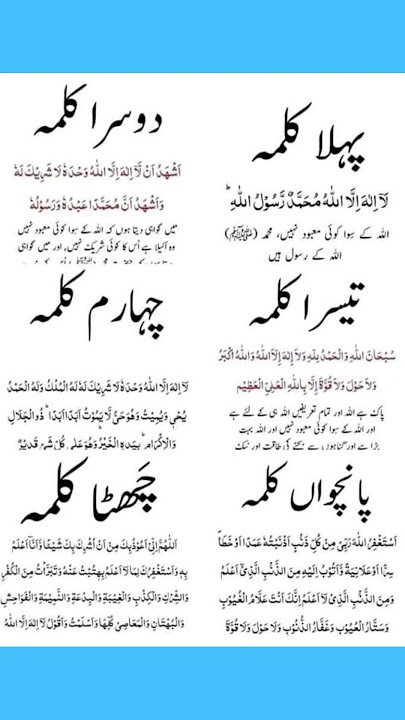 پہلا کلمہ
لَآ اِلٰہَ اِلَّا اللہُ مُحَمَّدٌ رَّسُوْلُ اللہِ ؕ
اللہ کے سِوا کوئی معبود نہیں، محمد (ﷺ)
اللہ کے رسول ہیں
دوسرا کلمہ
اَشْهَدُ اَنْ لَّآ اِلٰهَ اِلَّا اللهُ وَحْدَهٗ لَا شَرِيْكَ لَهٗ
وَاَشْهَدُ اَنَّ مُحَمَّدًا عَبْدُهٗ وَرَسُوْلُهٗ
میں گواہی دیتا ہوں کہ اللہ کے سوا کوئی معبود نہیں
وہ اکیلا ہے اُس کا کوئی شریک نہیں، اور میں گواہی
تیسرا کلمہ
سُبْحَانَ اللهِ وَالْحَمْدُ لِلّٰهِ وَلَا اِلٰهَ اِلَّا اللهُ وَاللهُ اَكْبَرُ
وَلَا حَوْلَ وَلَا قُوَّةَ اِلَّا بِاللهِ الْعَلِيِّ الْعَظِيْمِ
پاک ہے اللہ اور تمام تعریفیں اللہ ہی کے لئے ہے
اور اللہ کے سوا کوئی معبود نہیں اور اللہ بہت
بڑا ہے اور گناہوں سے بچنے کی طاقت اور نیک
چہارم کلمہ
لَآ اِلٰهَ اِلَّا اللهُ وَحْدَهٗ لَا شَرِيْكَ لَهٗ لَهُ الْمُلْكُ وَلَهُ الْحَمْدُ
يُحْيٖ وَيُمِيْتُ وَهُوَ حَيٌّ لَّا يَمُوْتُ اَبَدًا اَبَدًا ؕ ذُو الْجَلَالِ
وَالْاِكْرَامِ ؕ بِيَدِهِ الْخَيْرُ وَهُوَ عَلٰى كُلِّ شَیْءٍ قَدِيْرٌ
پانچواں کلمہ
اَسْتَغْفِرُ اللهَ رَبِّيْ مِنْ كُلِّ ذَنْۢبٍ اَذْنَبْتُهٗ عَمَدًا اَوْ خَطَأً
سِرًّا اَوْ عَلَانِيَةً وَّاَتُوْبُ اِلَيْهِ مِنَ الذَّنْۢبِ الَّذِيْٓ اَعْلَمُ
وَمِنَ الذَّنْۢبِ الَّذِيْ لَآ اَعْلَمُ اِنَّكَ اَنْتَ عَلَّامُ الْغُيُوْبِ
وَسَتَّارُ الْعُيُوْبِ وَغَفَّارُ الذُّنُوْبِ وَلَا حَوْلَ وَلَا قُوَّةَ
چھٹا کلمہ
اَللّٰهُمَّ اِنِّيْٓ اَعُوْذُ بِكَ مِنْ اَنْ اُشْرِكَ بِكَ شَيْئًا وَّاَنَآ اَعْلَمُ
بِهٖ وَاَسْتَغْفِرُكَ لِمَا لَآ اَعْلَمُ بِهٖ تُبْتُ عَنْهُ وَتَبَرَّأْتُ مِنَ الْكُفْرِ
وَالشِّرْكِ وَالْكِذْبِ وَالْغِيْبَةِ وَالْبِدْعَةِ وَالنَّمِيْمَةِ وَالْفَوَاحِشِ
وَالْبُهْتَانِ وَالْمَعَاصِيْ كُلِّهَا وَاَسْلَمْتُ وَاَقُوْلُ لَآ اِلٰهَ اِلَّا اللهُ